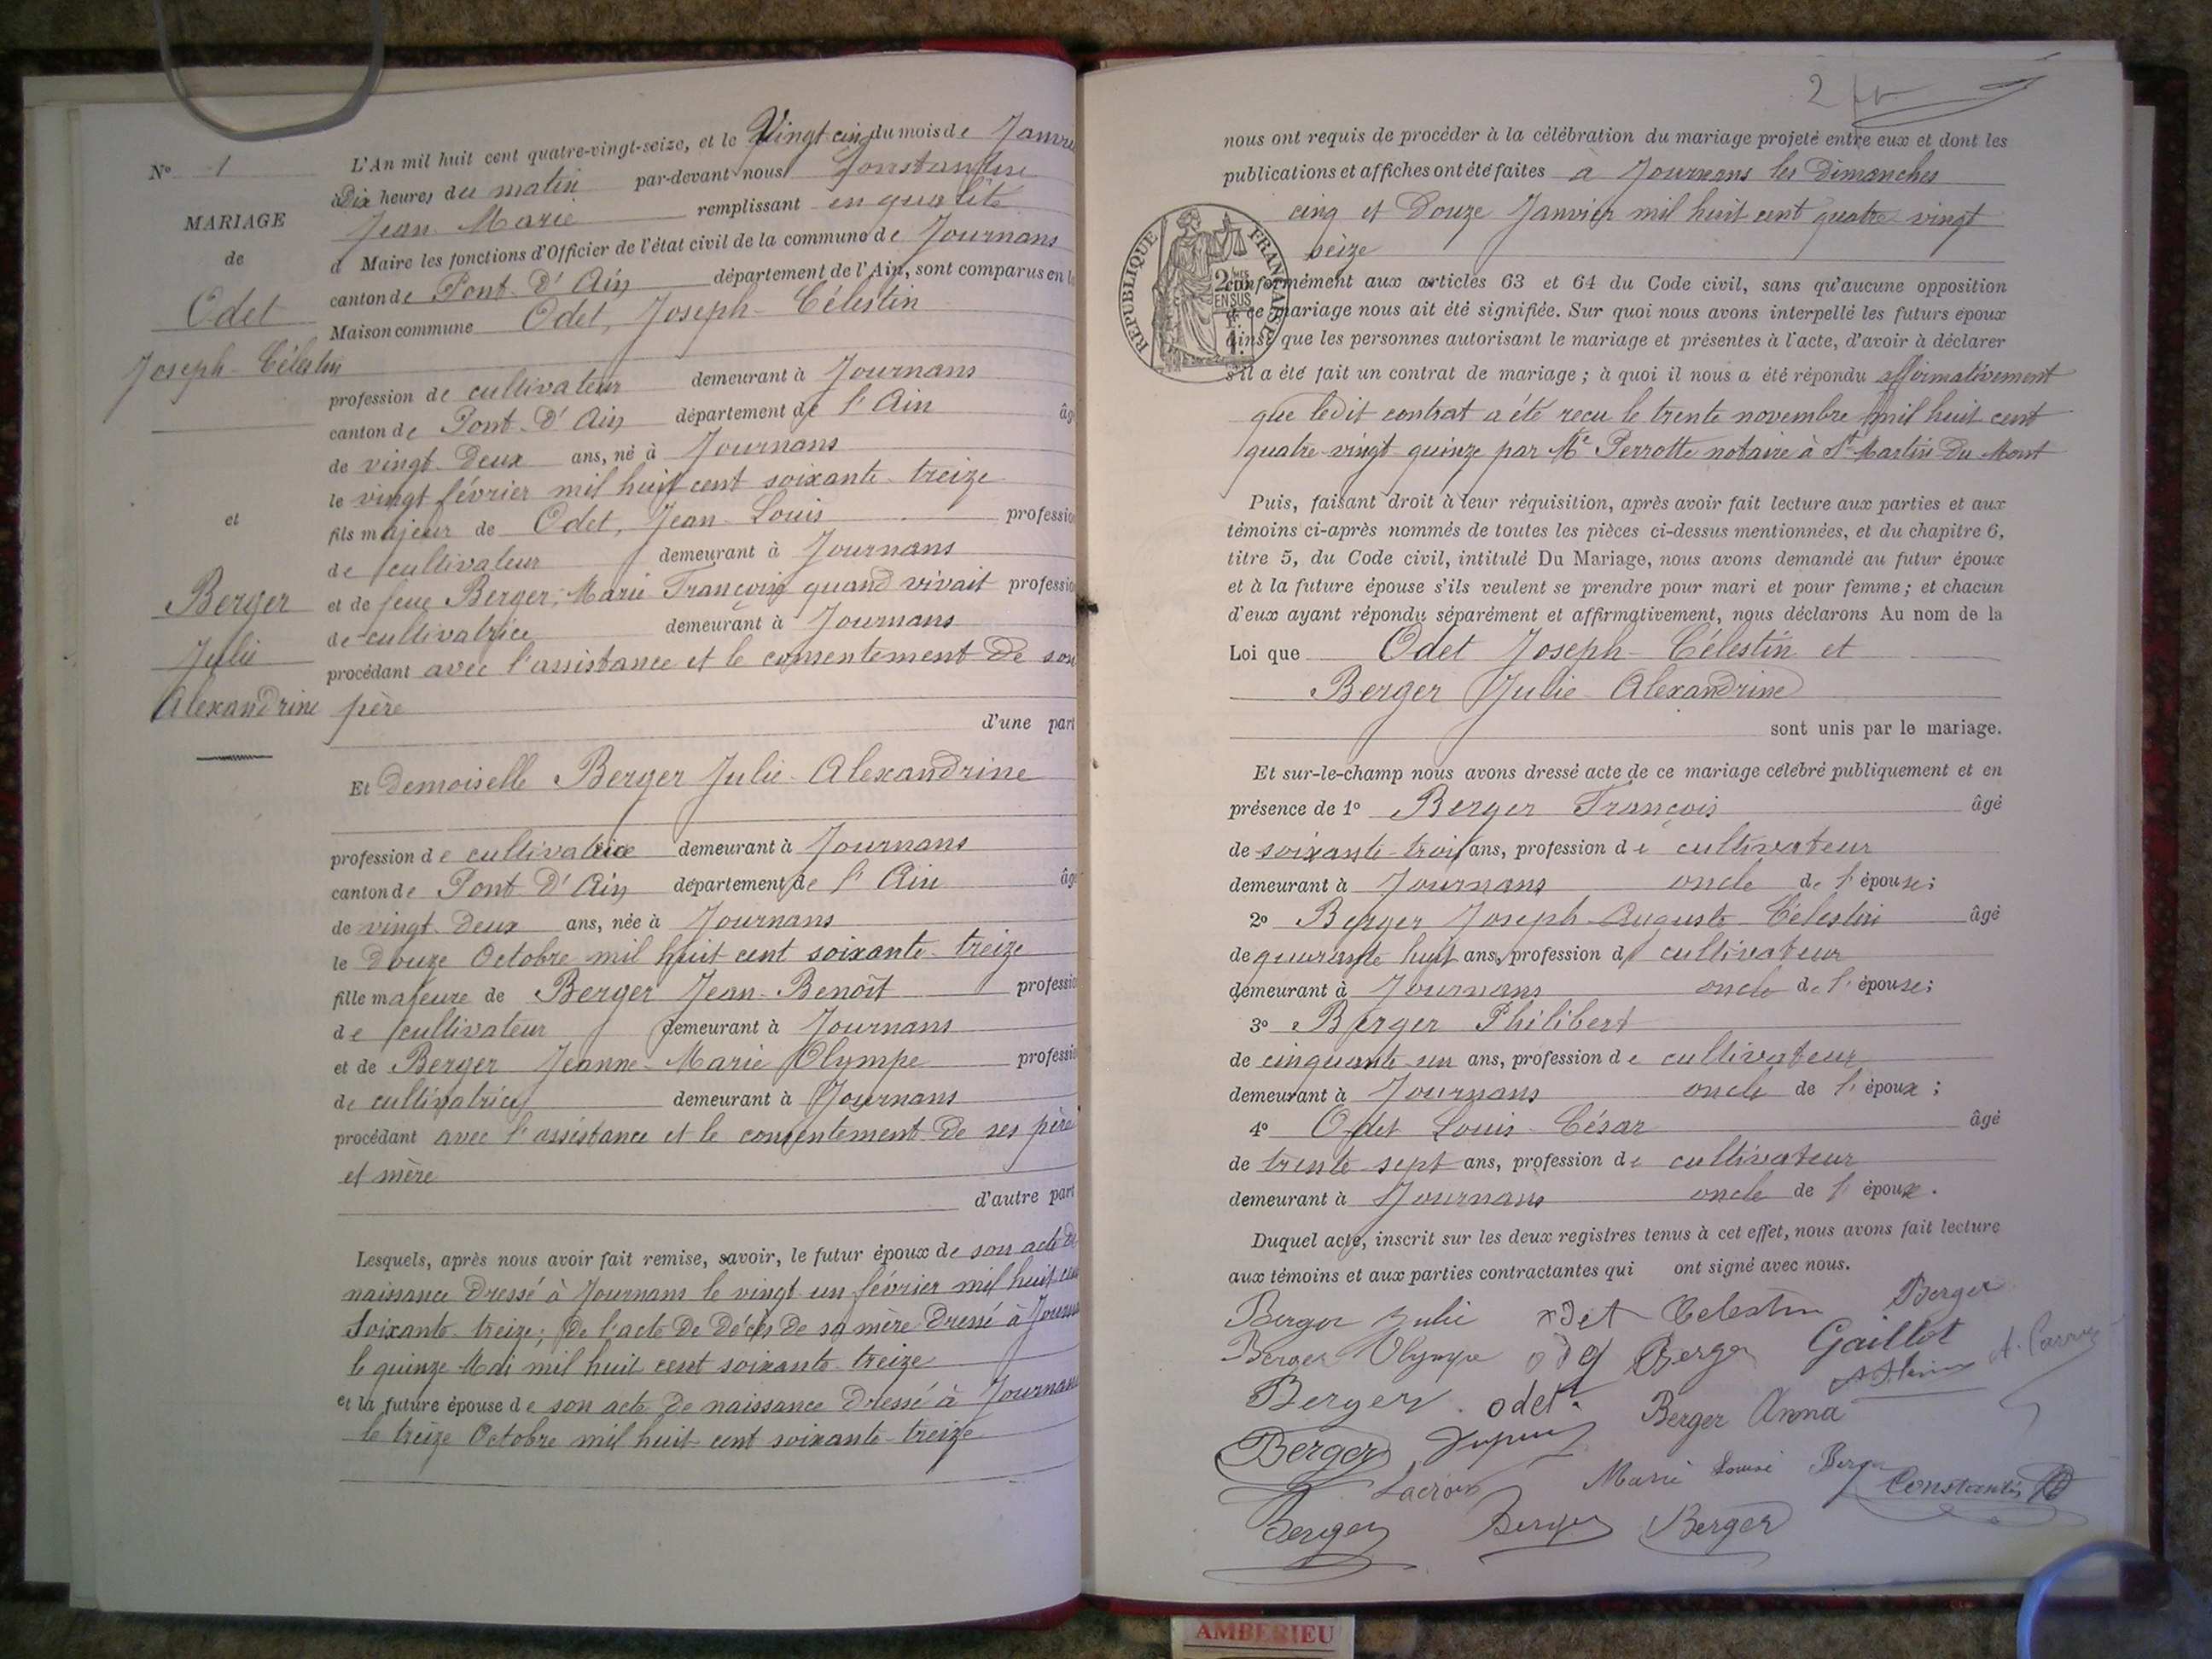 N° 1
MARIAGE
de
Odet
Joseph-Célestin
et
Berger
Julie
Alexandrine
L'An mil huit cent quatre-vingt-seize, et le Vingt cinq du mois de Janvier
à Dix heures du matin par-devant nous Constantin
Jean Marie remplissant en qualité
d Maire les fonctions d'Officier de l'état civil de la commune de Journans
canton de Pont-D'Ain département de l'Ain, sont comparus en la
Maison commune Odet, Joseph-Célestin
profession de cultivateur demeurant à Journans
canton de Pont-D'Ain département de l'Ain âgé
de vingt-Deux ans, né à Journans
le vingt février mil huit cent soixante-treize
fils majeur de Odet, Jean-Louis profession
de cultivateur demeurant à Journans
et de feue Berger, Marie Françoise quand vivait profession
de cultivatrice demeurant à Journans
procédant avec l'assistance et le consentement De son
père
d'une part
Et Demoiselle Berger Julie-Alexandrine
profession de cultivatrice demeurant à Journans
canton de Pont-D'Ain département de l'Ain âgé
de vingt-Deux ans, née à Journans
le Douze Octobre mil huit cent soixante-treize
fille majeure de Berger Jean-Benoît profession
de cultivateur demeurant à Journans
et de Berger Jeanne-Marie Olympe profession
de cultivatrice demeurant à Journans
procédant avec l'assistance et le consentement De ses père
et mère
d'autre part
Lesquels, après nous avoir fait remise, savoir, le futur époux de son acte de
naissance Dressé à Journans le vingt-un février mil huit cent
Soixante-treize; De l'acte De Décès De sa mère Dressé à Journans
le quinze Mai mil huit cent soixante-treize
et la future épouse de son acte De naissance Dressé à Journans
le treize Octobre mil huit-cent soixante-treize
2
nous ont requis de procéder à la célébration du mariage projeté entre eux et dont les
publications et affiches ont été faites à Journans les Dimanches
cinq et Douze Janvier mil huit cent quatre-vingt
seize
REPUBLIQUE FRANÇAISE
conformément aux articles 63 et 64 du Code civil, sans qu'aucune opposition
à ce mariage nous ait été signifiée. Sur quoi nous avons interpellé les futurs époux
ainsi que les personnes autorisant le mariage et présentes à l'acte, d'avoir à déclarer
s'il a été fait un contrat de mariage; à quoi il nous a été répondu affirmativement
que ledit contrat a été reçu le trente novembre mil huit cent
quatre-vingt-quinze par Me Perrotte notaire à St Martin-Du-Mont
Puis, faisant droit à leur réquisition, après avoir fait lecture aux parties et aux
témoins ci-après nommés de toutes les pièces ci-dessus mentionnées, et du chapitre 6,
titre 5, du Code civil, intitulé Du Mariage, nous avons demandé au futur époux
et à la future épouse s'ils veulent se prendre pour mari et pour femme; et chacun
d'eux ayant répondu séparément et affirmativement, nous déclarons Au nom de la
Loi que Odet Joseph-Célestin et
Berger Julie-Alexandrine
sont unis par le mariage.
Et sur-le-champ nous avons dressé acte de ce mariage célébré publiquement et en
présence de 1° Berger François âgé
de soixante-trois ans, profession de cultivateur
demeurant à Journans oncle de l'épouse;
2° Berger Joseph-Auguste-Célestin âgé
de quarante huit ans, profession de cultivateur
demeurant à Journans oncle de l'épouse;
3° Berger Philibert
de cinquante-un ans, profession de cultivateur
demeurant à Journans oncle de l'époux;
4° Odet Louis-César âgé
de trente-sept ans, profession de cultivateur
demeurant à Journans oncle de l'époux.
Duquel acte, inscrit sur les deux registres tenus à cet effet, nous avons fait lecture
aux témoins et aux parties contractantes qui ont signé avec nous.
Berger Julie odet Celestin Berger
Berger Olympe Berger Gaillot
Berger odet Berger Anna
Berger Lacroix Marie Louise Berger Constantin
Berger Berger Berger
AMBERIEU